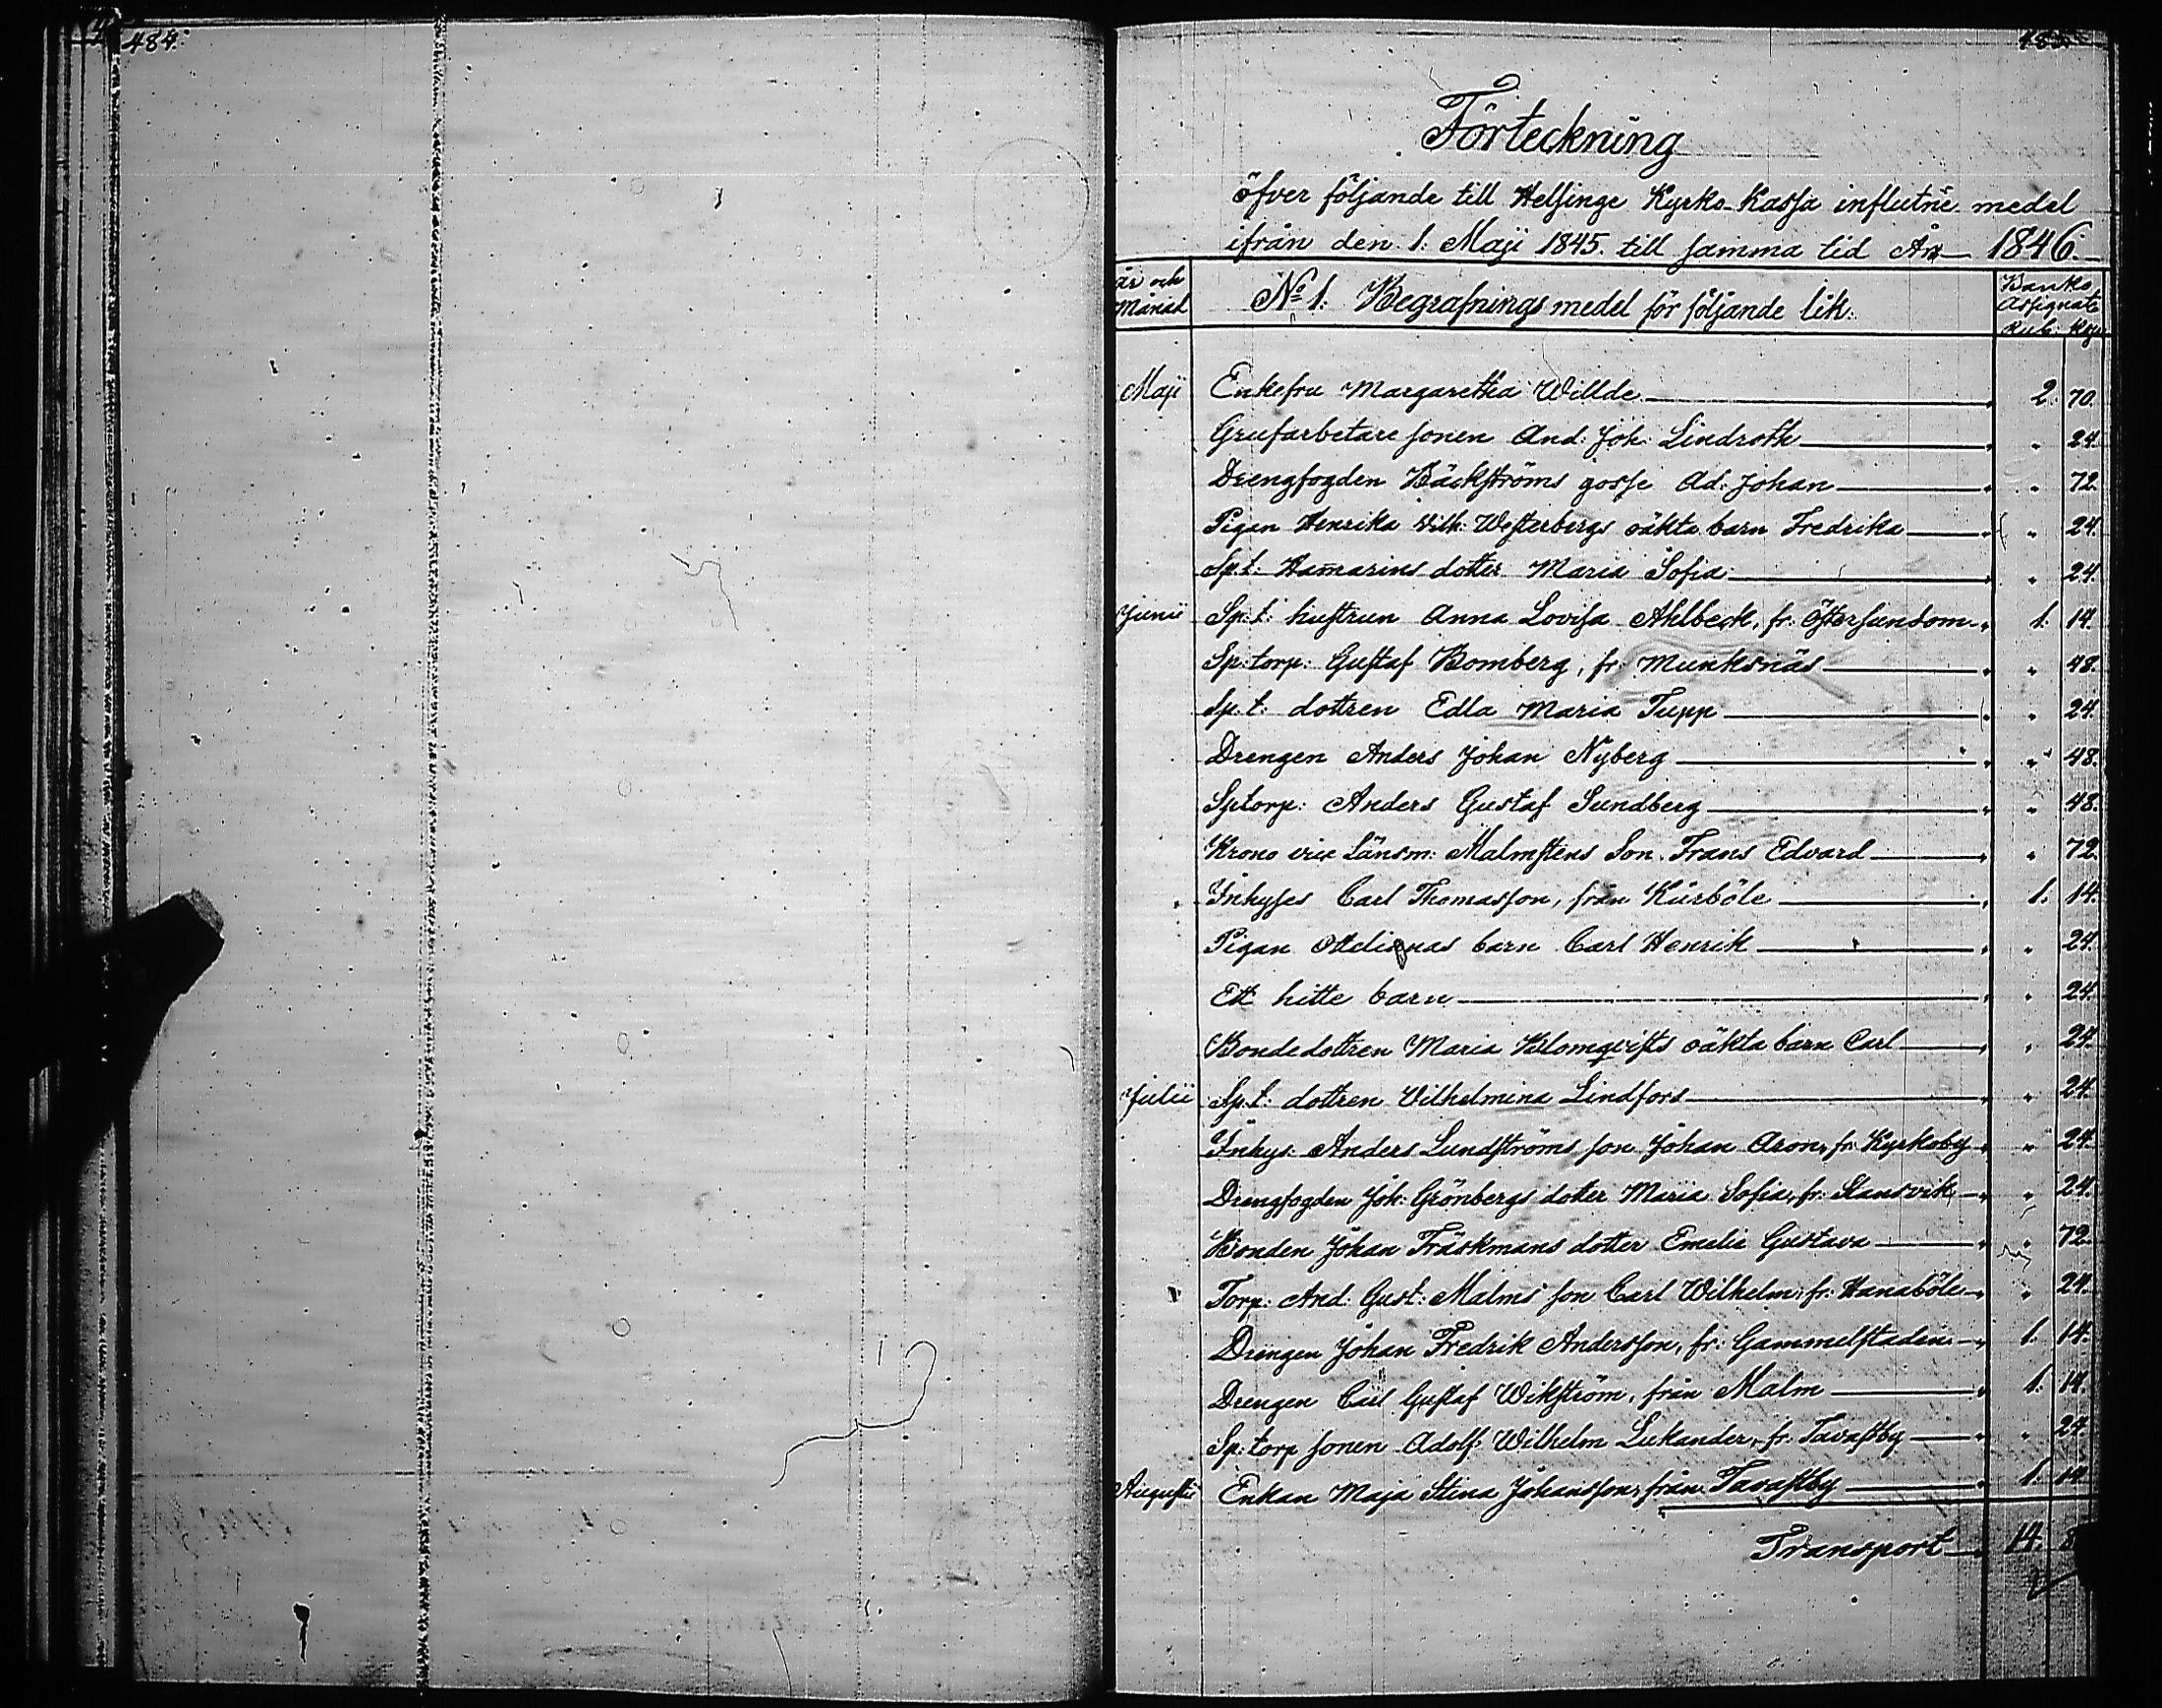 484.
485.
Förteckning
öfver följande till Helsinge Kyrko-Kassa influtne medel
ifrån den 1. Maji 1845. till samma tid År 1846.
år och Månad
No 1. Begrafnings medel för följande lik.
Banko Assignats
Rub. Kop
Maji Enkefru Margaretha Willde 2. 70.
Grufarbetare sonen And: Joh: Lindroth " 24.
Drengfogden Bäckströms gosse Ad: Johan " 72.
Pigan Henrika Vilh: Westerbergs oäkta barn Fredrika " 24.
Sp.t: Hamarins dotter Maria Sofia " 24.
Junii Sp:t: hustrun Anna Lovisa Ahlbeck, fr: Östersundom 1. 14.
Sp:torp: Gustaf Bomberg, fr: Munksnäs " 48.
Sp.t: dottren Edla Maria Tupp " 24.
Drengen Anders Johan Nyberg " 48.
Sptorp: Anders Gustaf Sundberg " 48.
Krono vice Länsm: Malmstens Son Frans Edvard " 72.
Inhyses Carl Thomasson, från Kårböle 1. 14.
Pigan barn Carl Henrik " 24.
Ett hitte barn " 24.
Bondedottren Maria Blomqvists oäkta barn Carl " 24.
Julii Sp.t: dottren Vilhelmina Lindfors " 24.
Inhys: Anders Lundströms son Johan Aron, fr: Kyrkoby " 24.
Drengfogden Joh: Grönbergs dotter Maria Sofia, fr: Stansvik " 24.
Bonden Johan Träskmans dotter Emelie Gustava " 72.
Torp: And: Gust: Malms son Carl Wilhelm, fr: Hanaböle " 24.
Drengen Johan Fredrik Andersson, fr: Gammelstaden 1. 14.
Drengen Carl Gustaf Wikström, från Malm 1. 14.
Sp:torp sonen Adolf: Wilhelm Lukander, fr: Tavastby " 24.
Augusti Enkan Maja Stina Johansson, från Tavastby 1. 14
Transport 14. 8